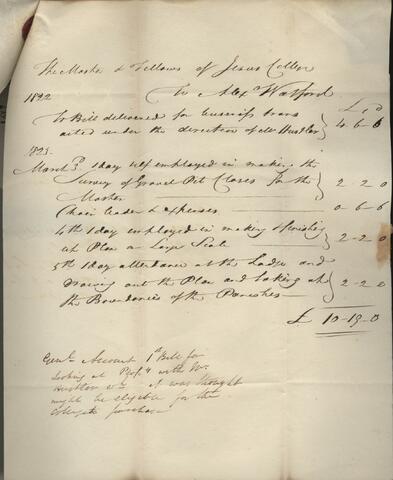 The Master & Fellows of Jesus College
To Alexr Watford
1822 £ s d
To Bill delivered for business trans
acted under the direction of Mr Hustler } 4-6-6
1823
March 3d 1 day self employed in making the
Survey of Gravel Pit Closes for the
Master } 2-2-0
Chain leader & expenses 0-6-6
4th 1 day employed in making & finishing
up Plan on Large Scale } 2-2-0
5th 1 day attendance at the Lodge and
Drawing out the Plan and looking at
the Boundaries of the Parishes } 2-2-0
£ 10-19-0
Genl. Account 1st Bill for
looking at Propy with Mr
Hustler wh. it was thought
might be eligible for the
College to purchase